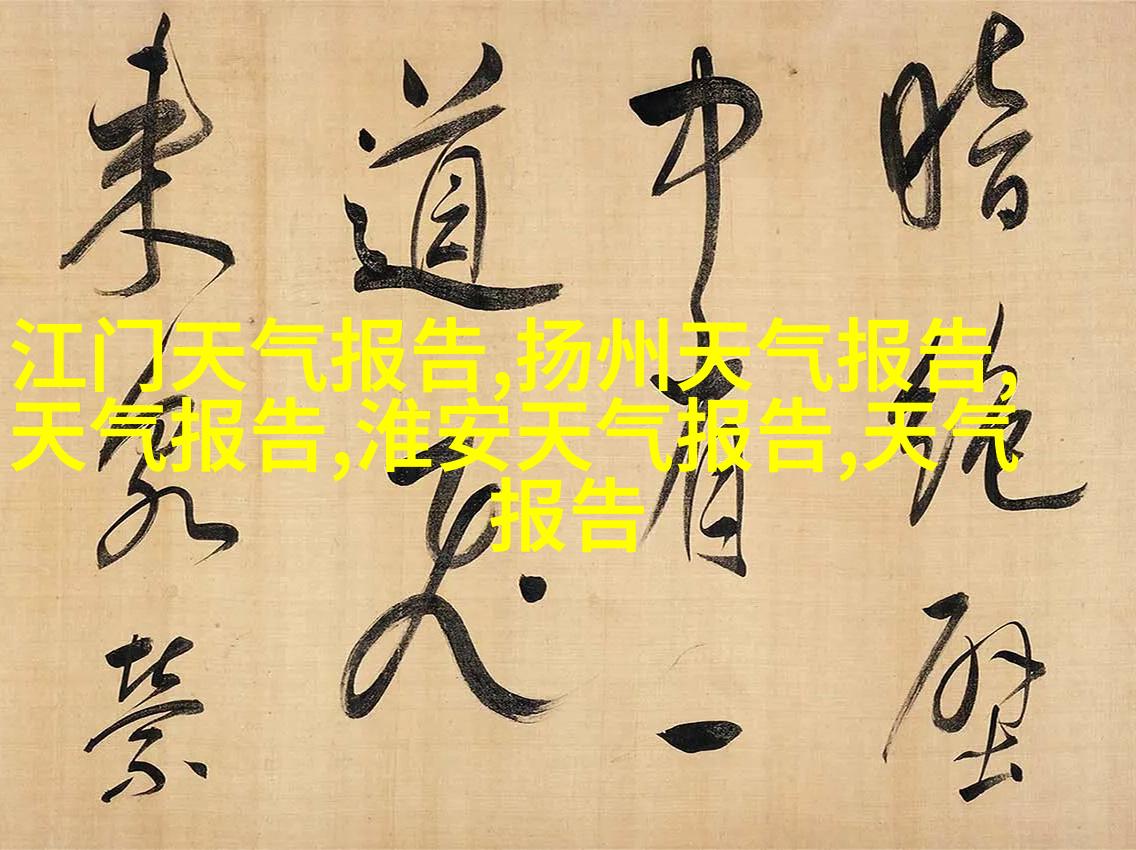 江门天气报告,扬州天气报告,
天气报告,淮安天气报告,天气
报告
暗絶壁
中有一
道
来泉縈